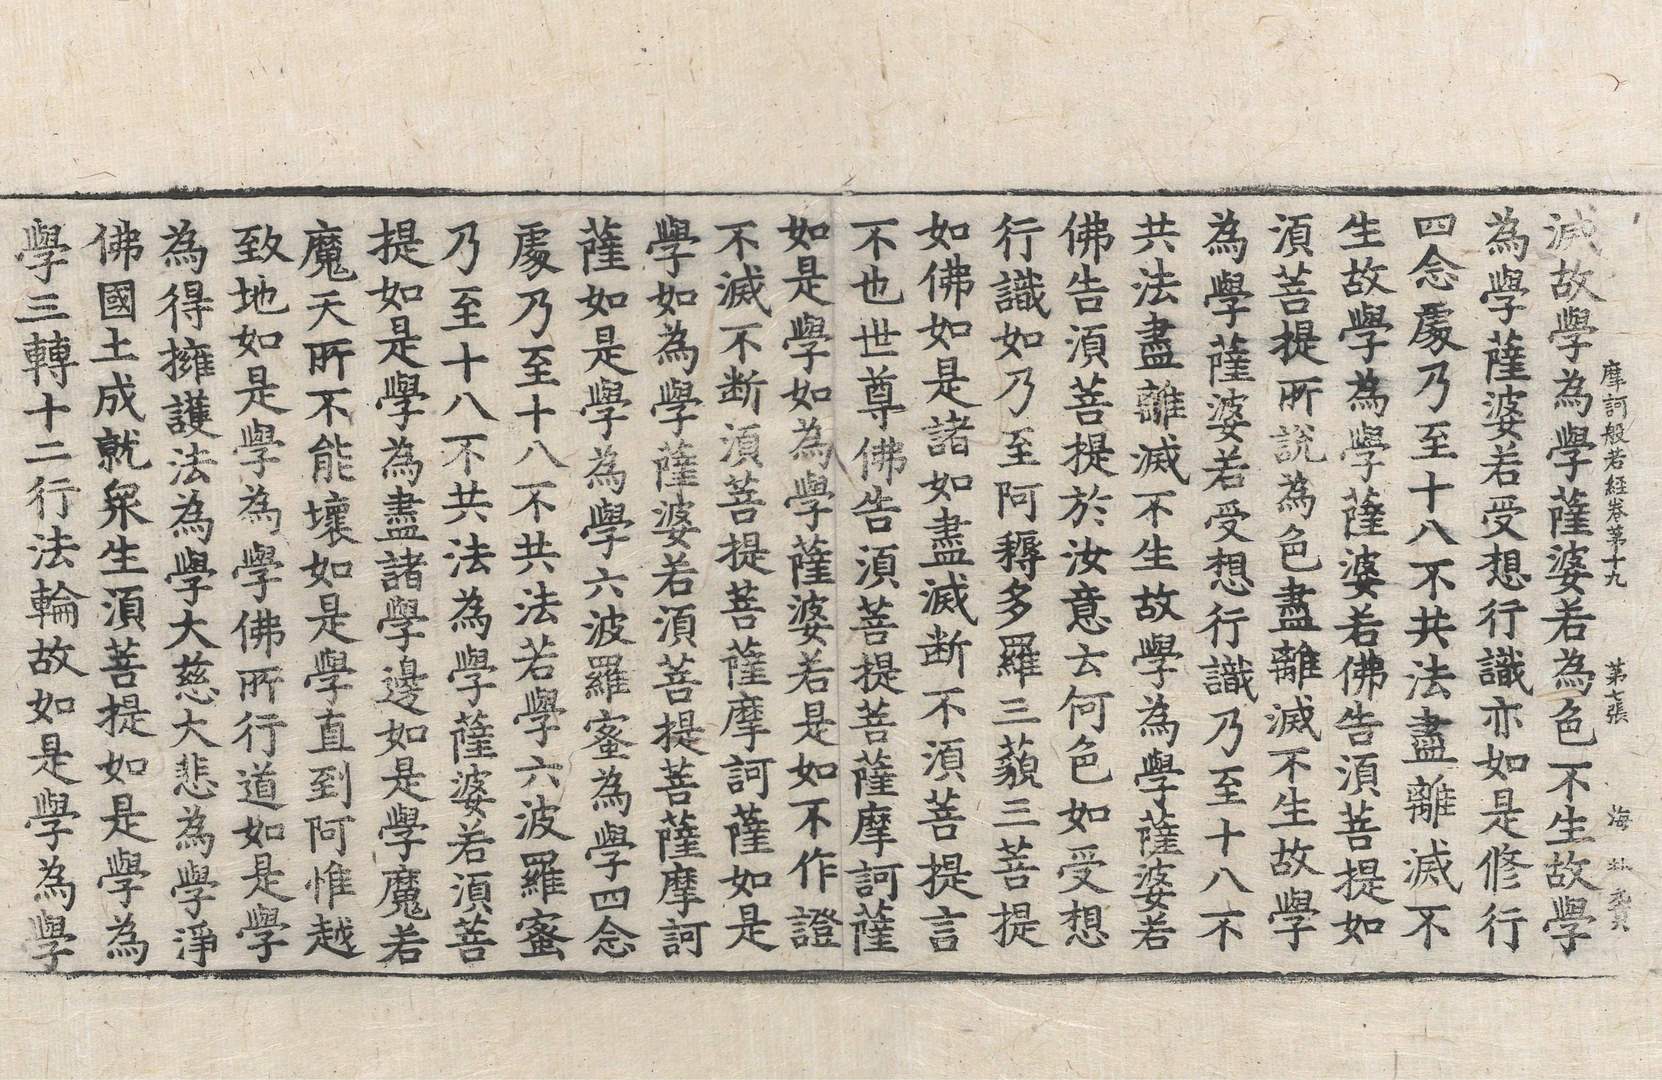 摩訶般若經卷第十九　第七張　海
滅故學為學薩婆若為色不生故學
為學薩婆若受想行識亦如是修行
四念處乃至十八不共法盡離滅不
生故學為學薩婆若佛告須菩提如
須菩提所說為色盡離滅不生故學
為學薩婆若受想行識乃至十八不
共法盡離滅不生故學為學薩婆若
佛告須菩提於汝意云何色如受想
行識如乃至阿耨多羅三藐三菩提
如佛如是諸如盡滅断不須菩提言
不也世尊佛告須菩提菩薩摩訶薩
如是學如為學薩婆若是如不作證
不滅不断須菩提菩薩摩訶薩如是
學如為學薩婆若須菩提菩薩摩訶
薩如是學為學六波羅蜜為學四念
處乃至十八不共法若學六波羅蜜
乃至十八不共法為學薩婆若須菩
提如是學為盡諸學邊如是學魔若
魔天所不能壞如是學直到阿惟越
致地如是學為學佛所行道如是學
為得擁護法為學大慈大悲為學淨
佛國土成就衆生須菩提如是學為
學三轉十二行法輪故如是學為學